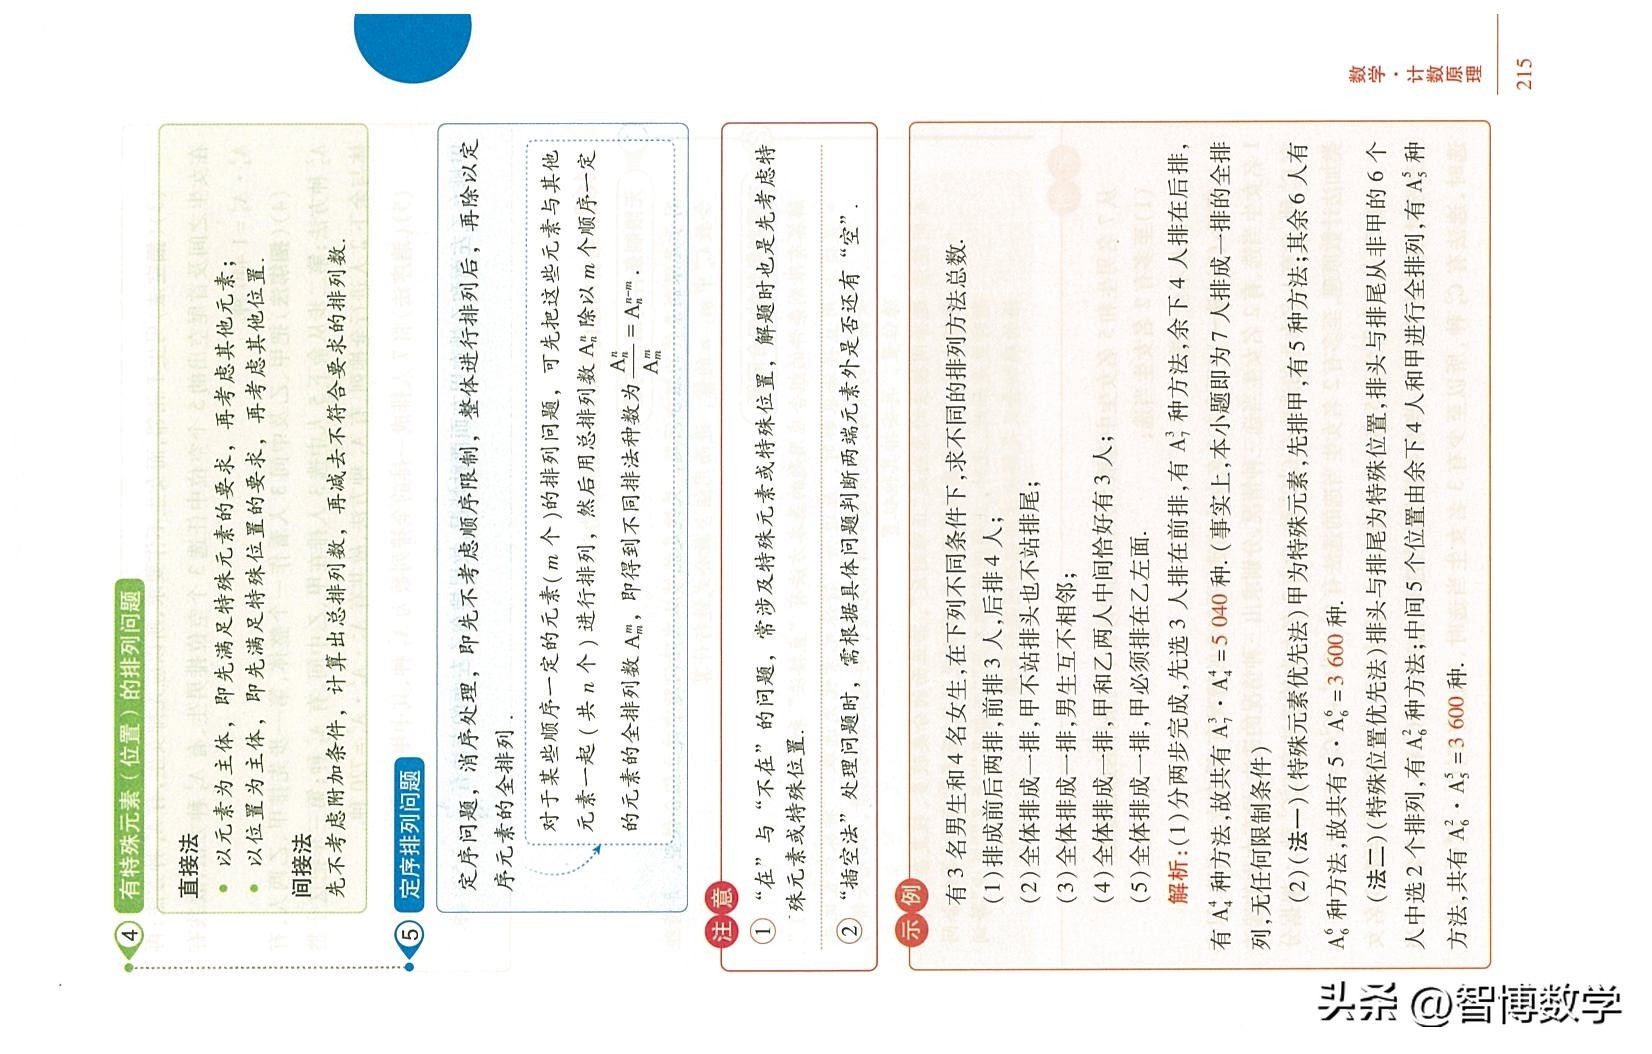 ④ 有特殊元素(位置)的排列问题
直接法
• 以元素为主体，即先满足特殊元素的要求，再考虑其他元素；
• 以位置为主体，即先满足特殊位置的要求，再考虑其他位置.
间接法
先不考虑附加条件，计算出总排列数，再减去不符合要求的排列数.
⑤ 定序排列问题
定序问题，消序处理，即先不考虑顺序限制，整体进行排列后，再除以定
序元素的全排列.
对于某些顺序一定的元素(m 个)的排列问题，可先把这些元素与其他
元素一起(共 n 个)进行排列，然后用总排列数 Aₙⁿ 除以 m 个顺序一定
的元素的全排列数 Aₘᵐ，即得到不同排法种数为 Aₙⁿ/Aₘᵐ = Aₙⁿ⁻ᵐ.
注意
① “在”与“不在”的问题，常涉及特殊元素或特殊位置，解题时也是先考虑特
殊元素或特殊位置.
② “插空法”处理问题时，需根据具体问题判断两端元素外是否还有“空”.
示例
有 3 名男生和 4 名女生,在下列不同条件下,求不同的排列方法总数.
(1)排成前后两排,前排 3 人,后排 4 人;
(2)全体排成一排,甲不站排头也不站排尾;
(3)全体排成一排,男生互不相邻;
(4)全体排成一排,甲和乙两人中间恰好有 3 人;
(5)全体排成一排,甲必须排在乙左面.
解析:(1)分两步完成,先选 3 人排在前排,有 A₇³ 种方法,余下 4 人排在后排,
有 A₄⁴ 种方法,故共有 A₇³·A₄⁴=5 040 种.(事实上,本小题即为 7 人排成一排的全排
列,无任何限制条件)
(2)(法一)(特殊元素优先法)甲为特殊元素,先排甲,有 5 种方法;其余 6 人有
A₆⁶ 种方法,故共有 5·A₆⁶=3 600 种.
(法二)(特殊位置优先法)排头与排尾为特殊位置,排头与排尾从非甲的 6 个
人中选 2 个排列,有 A₆² 种方法;中间 5 个位置由余下 4 人和甲进行全排列,有 A₅⁵ 种
方法,共有 A₆²·A₅⁵=3 600 种.
数学·计数原理
215
头条 @智博数学